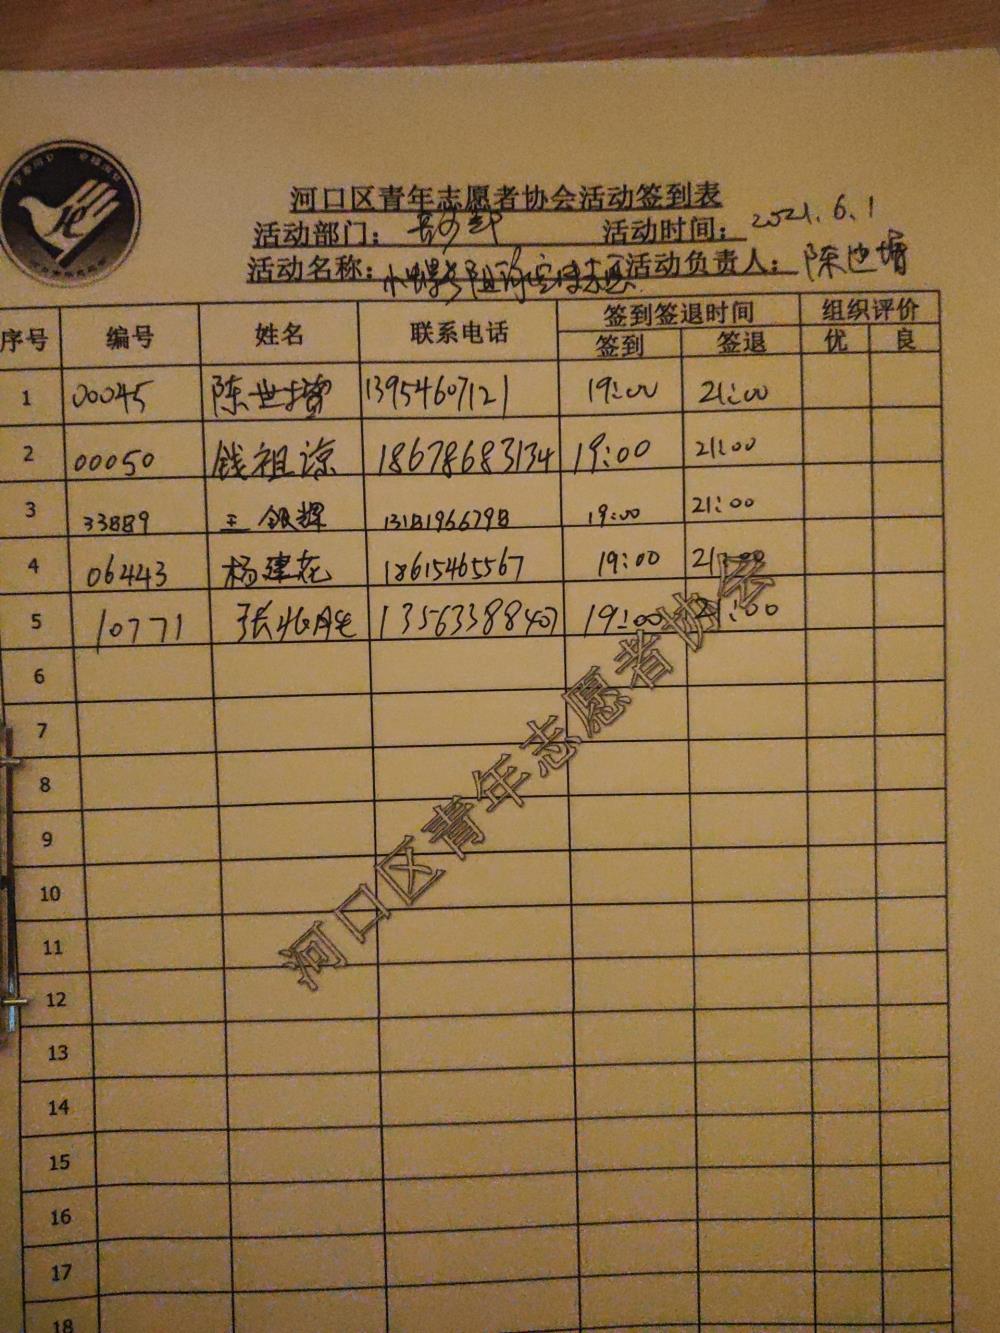 河口区青年志愿者协会活动签到表
活动部门： 活动时间：2021.6.1
活动名称：小 活动负责人：陈世
序号 编号 姓名 联系电话 签到签退时间 组织评价
签到 签退 优 良
1 00045 陈世 13954607121 19:00 21:00
2 00050 钱祖谅 18678683134 19:00 21:00
3 33889 王银辉 13181966798 19:00 21:00
4 06443 杨建花 18615465567 19:00 21:00
5 10771 张 13563388407 19:00 21:00
6
7
8
9
10
11
12
13
14
15
16
17
18
河口区青年志愿者协会